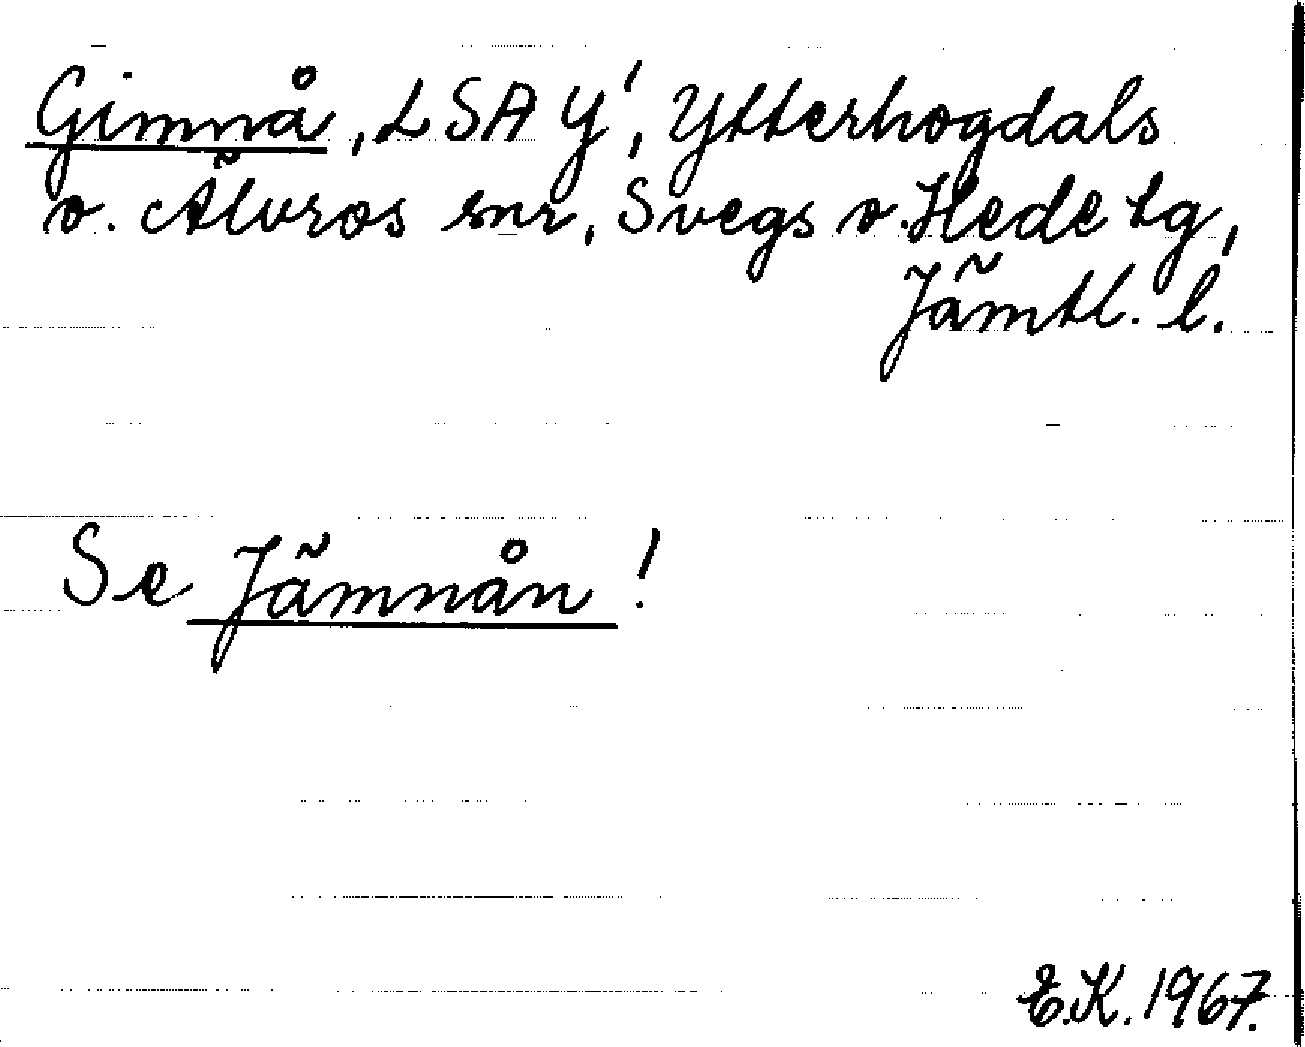 Gimnå, LSA Y', Ytterhogdals
o. Älvros snr, Svegs o. Hede tg,
Jämtl. l.
Se Jämnån!
E.K. 1967.